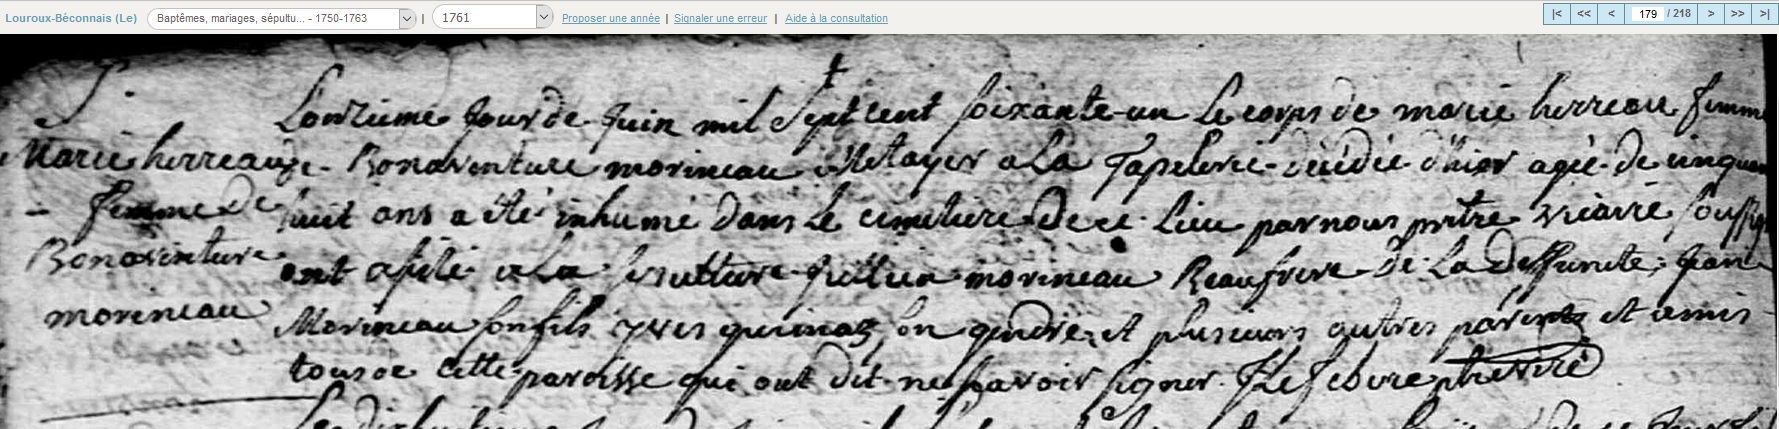 Louroux-Béconnais (Le) Baptêmes, mariages, sépultu... - 1750-1763 | 1761 Proposer une année | Signaler une erreur | Aide à la consultation |< << < 179 / 218 > >> >|
S.
Marie herreau
femme de
Bonaventure
morineau
Lonzieme jour de juin mil sept cent soixante-un le corps de marie herreau femme
de Bonaventure morineau Metayer a La Tapelerie décédée d'hier agée de cinquan
huit ans a été inhumé dans le cimetiere de ce Lieu par nous prêtre vicaire soussig
ont assisté a La sepulture jullien morineau Beaufrere de La deffunte; jean
Morineau son fils yves son gendre et plusieurs autres parents et amis
tous de cette paroisse qui ont dit ne sçavoir signer. Lefebvre